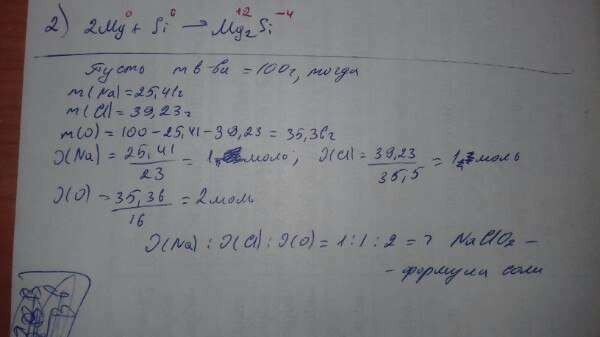 2) 2Mg⁰ + Si⁰ → Mg₂⁺²Si⁻⁴
Пусть m в-ва = 100г, тогда
m(Na) = 25,41г
m(Cl) = 39,23г
m(O) = 100 - 25,41 - 39,23 = 35,36г
ν(Na) = 25,41/23 = 1,1 моль, ν(Cl) = 39,23/35,5 = 1,1 моль
ν(O) = 35,36/16 = 2 моль
ν(Na) : ν(Cl) : ν(O) = 1 : 1 : 2 => NaClO₂ -
- формула соли